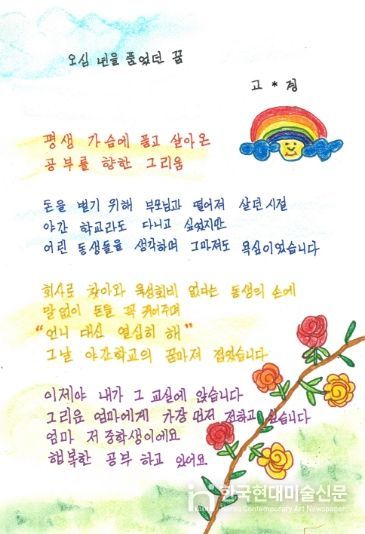 오십 년을 품었던 꿈
고 * 정
평생 가슴에 품고 살아온
공부를 향한 그리움
돈을 벌기 위해 부모님과 떨어져 살던 시절
야간 학교라도 다니고 싶었지만
어린 동생들을 생각하며 그마저도 욕심이었습니다
회사로 찾아와 육성회비 없다는 동생의 손에
말없이 돈을 꼭 쥐어주며
"언니 대신 열심히 해"
그날 야간학교의 꿈마저 접었습니다
이제야 내가 그 교실에 앉습니다
그리운 엄마에게 가장 먼저 전하고 싶습니다
엄마 저 중학생이에요
행복한 공부 하고 있어요
한국현대미술신문
Contemporary Art Newspaper